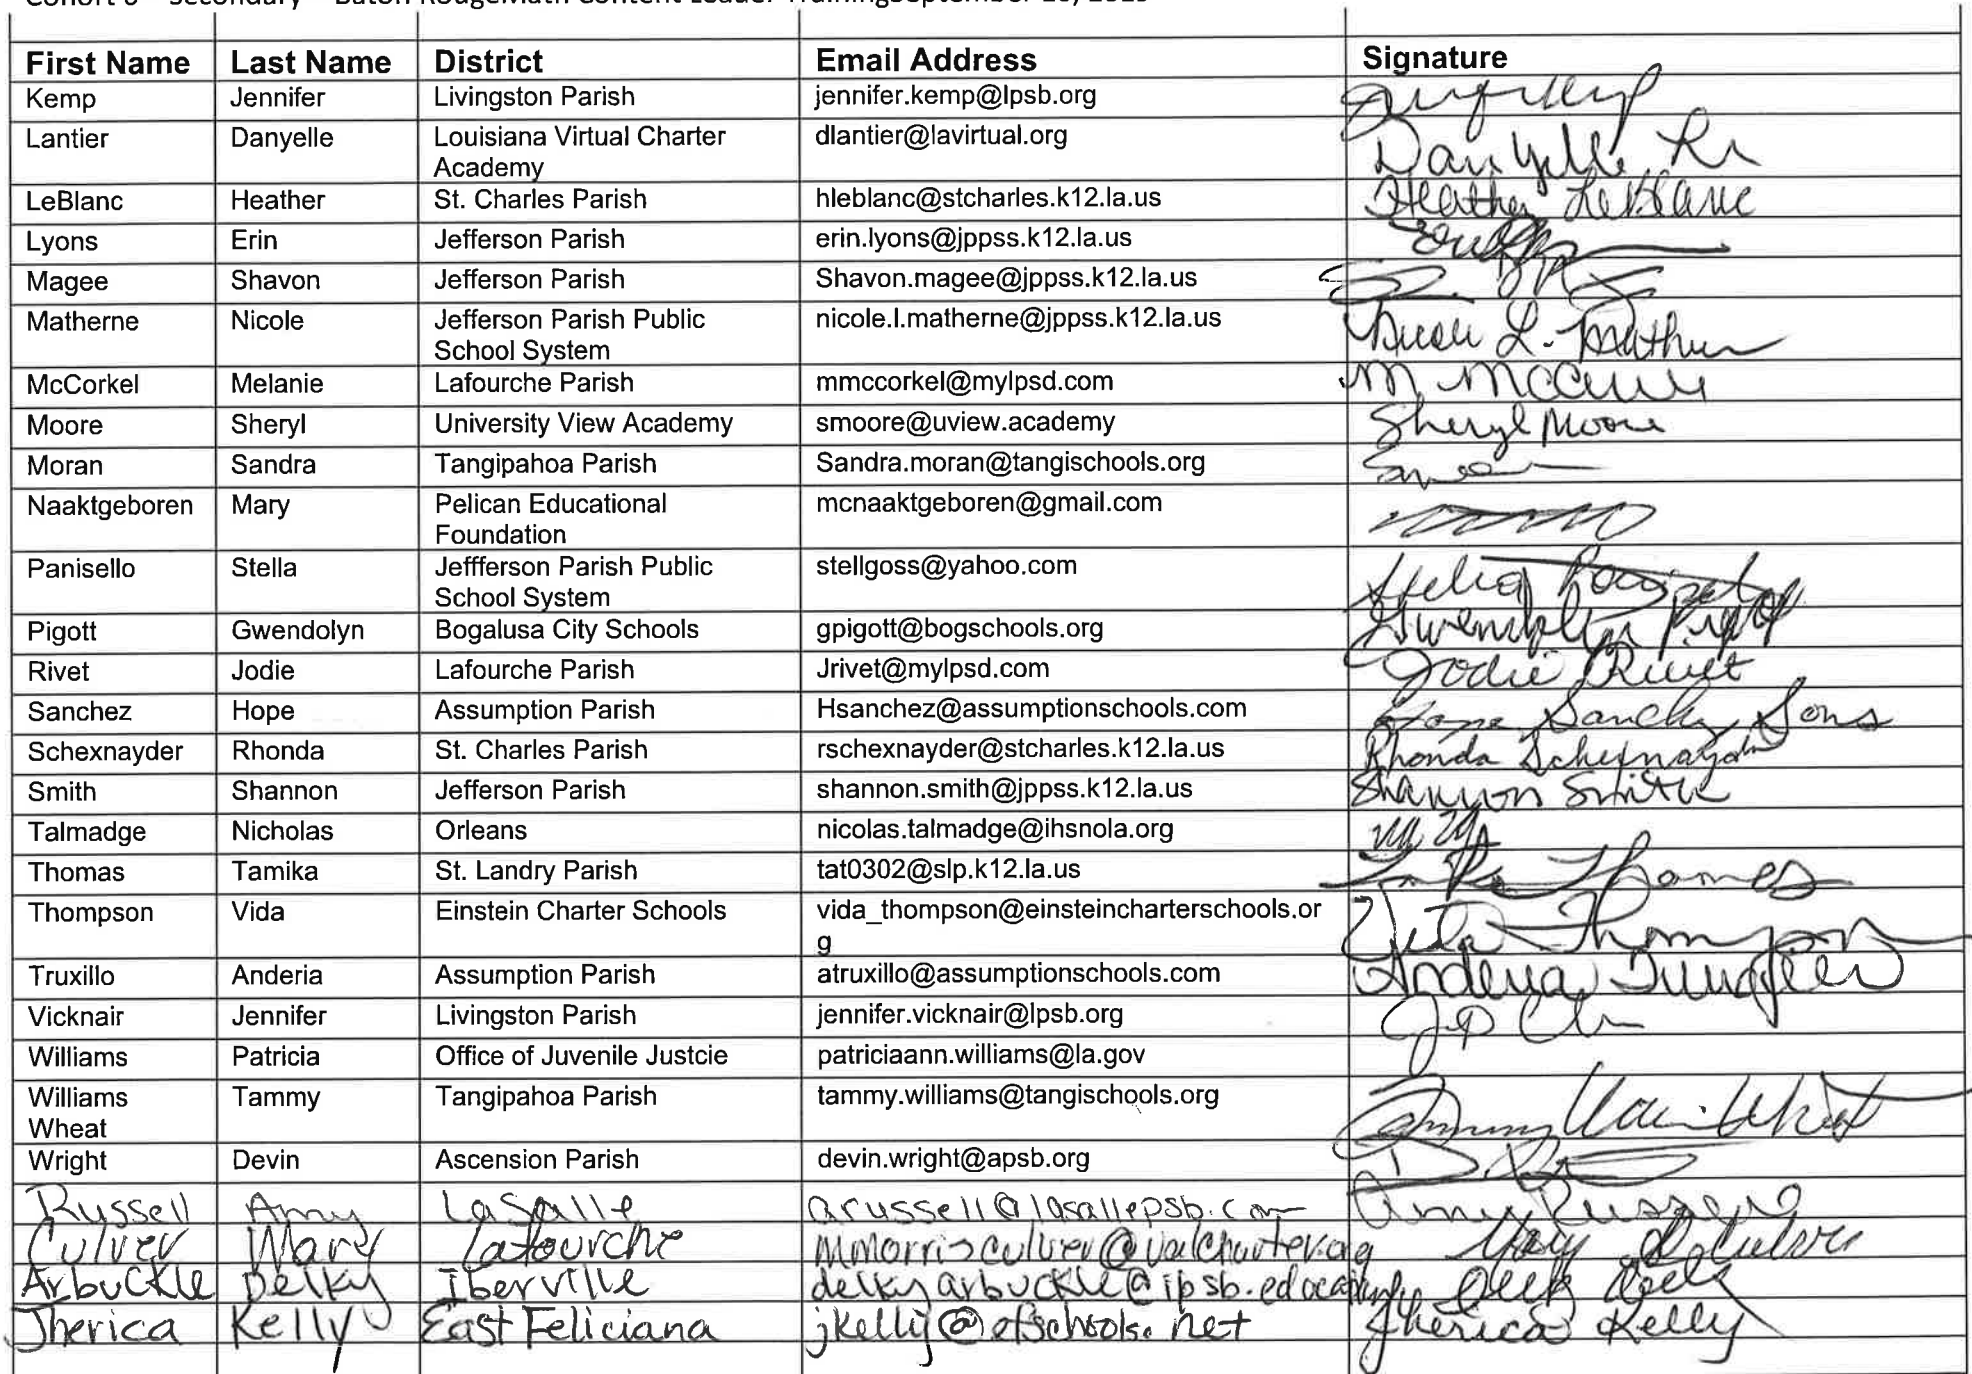 First Name Last Name District Email Address Signature
Kemp Jennifer Livingston Parish jennifer.kemp@lpsb.org
Lantier Danyelle Louisiana Virtual Charter dlantier@lavirtual.org Danyelle
Academy
LeBlanc Heather St. Charles Parish hleblanc@stcharles.k12.la.us Heather LeBlanc
Lyons Erin Jefferson Parish erin.lyons@jppss.k12.la.us
Magee Shavon Jefferson Parish Shavon.magee@jppss.k12.la.us
Matherne Nicole Jefferson Parish Public nicole.l.matherne@jppss.k12.la.us
School System
McCorkel Melanie Lafourche Parish mmccorkel@mylpsd.com
Moore Sheryl University View Academy smoore@uview.academy Sheryl Moore
Moran Sandra Tangipahoa Parish Sandra.moran@tangischools.org
Naaktgeboren Mary Pelican Educational mcnaaktgeboren@gmail.com
Foundation
Panisello Stella Jeffferson Parish Public stellgoss@yahoo.com
School System
Pigott Gwendolyn Bogalusa City Schools gpigott@bogschools.org Gwendolyn Pigott
Rivet Jodie Lafourche Parish Jrivet@mylpsd.com Jodie Rivet
Sanchez Hope Assumption Parish Hsanchez@assumptionschools.com Hope Sanchez Sons
Schexnayder Rhonda St. Charles Parish rschexnayder@stcharles.k12.la.us Rhonda Schexnayder
Smith Shannon Jefferson Parish shannon.smith@jppss.k12.la.us Shannon Smith
Talmadge Nicholas Orleans nicolas.talmadge@ihsnola.org
Thomas Tamika St. Landry Parish tat0302@slp.k12.la.us Thomas
Thompson Vida Einstein Charter Schools vida_thompson@einsteincharterschools.or Vida Thompson
g
Truxillo Anderia Assumption Parish atruxillo@assumptionschools.com Anderia Truxillo
Vicknair Jennifer Livingston Parish jennifer.vicknair@lpsb.org
Williams Patricia Office of Juvenile Justcie patriciaann.williams@la.gov
Williams Tammy Tangipahoa Parish tammy.williams@tangischools.org
Wheat
Wright Devin Ascension Parish devin.wright@apsb.org
Russell Amy LaSalle arussell@lasallepsb.com Amy Russell
Culver Mary Lafourche mmorrisculver@valcharter.org Mary Culver
Arbuckle Delky Iberville delkyarbuckle@ipsb.education
Jherica Kelly East Feliciana jkelly@efschools.net Jherica Kelly